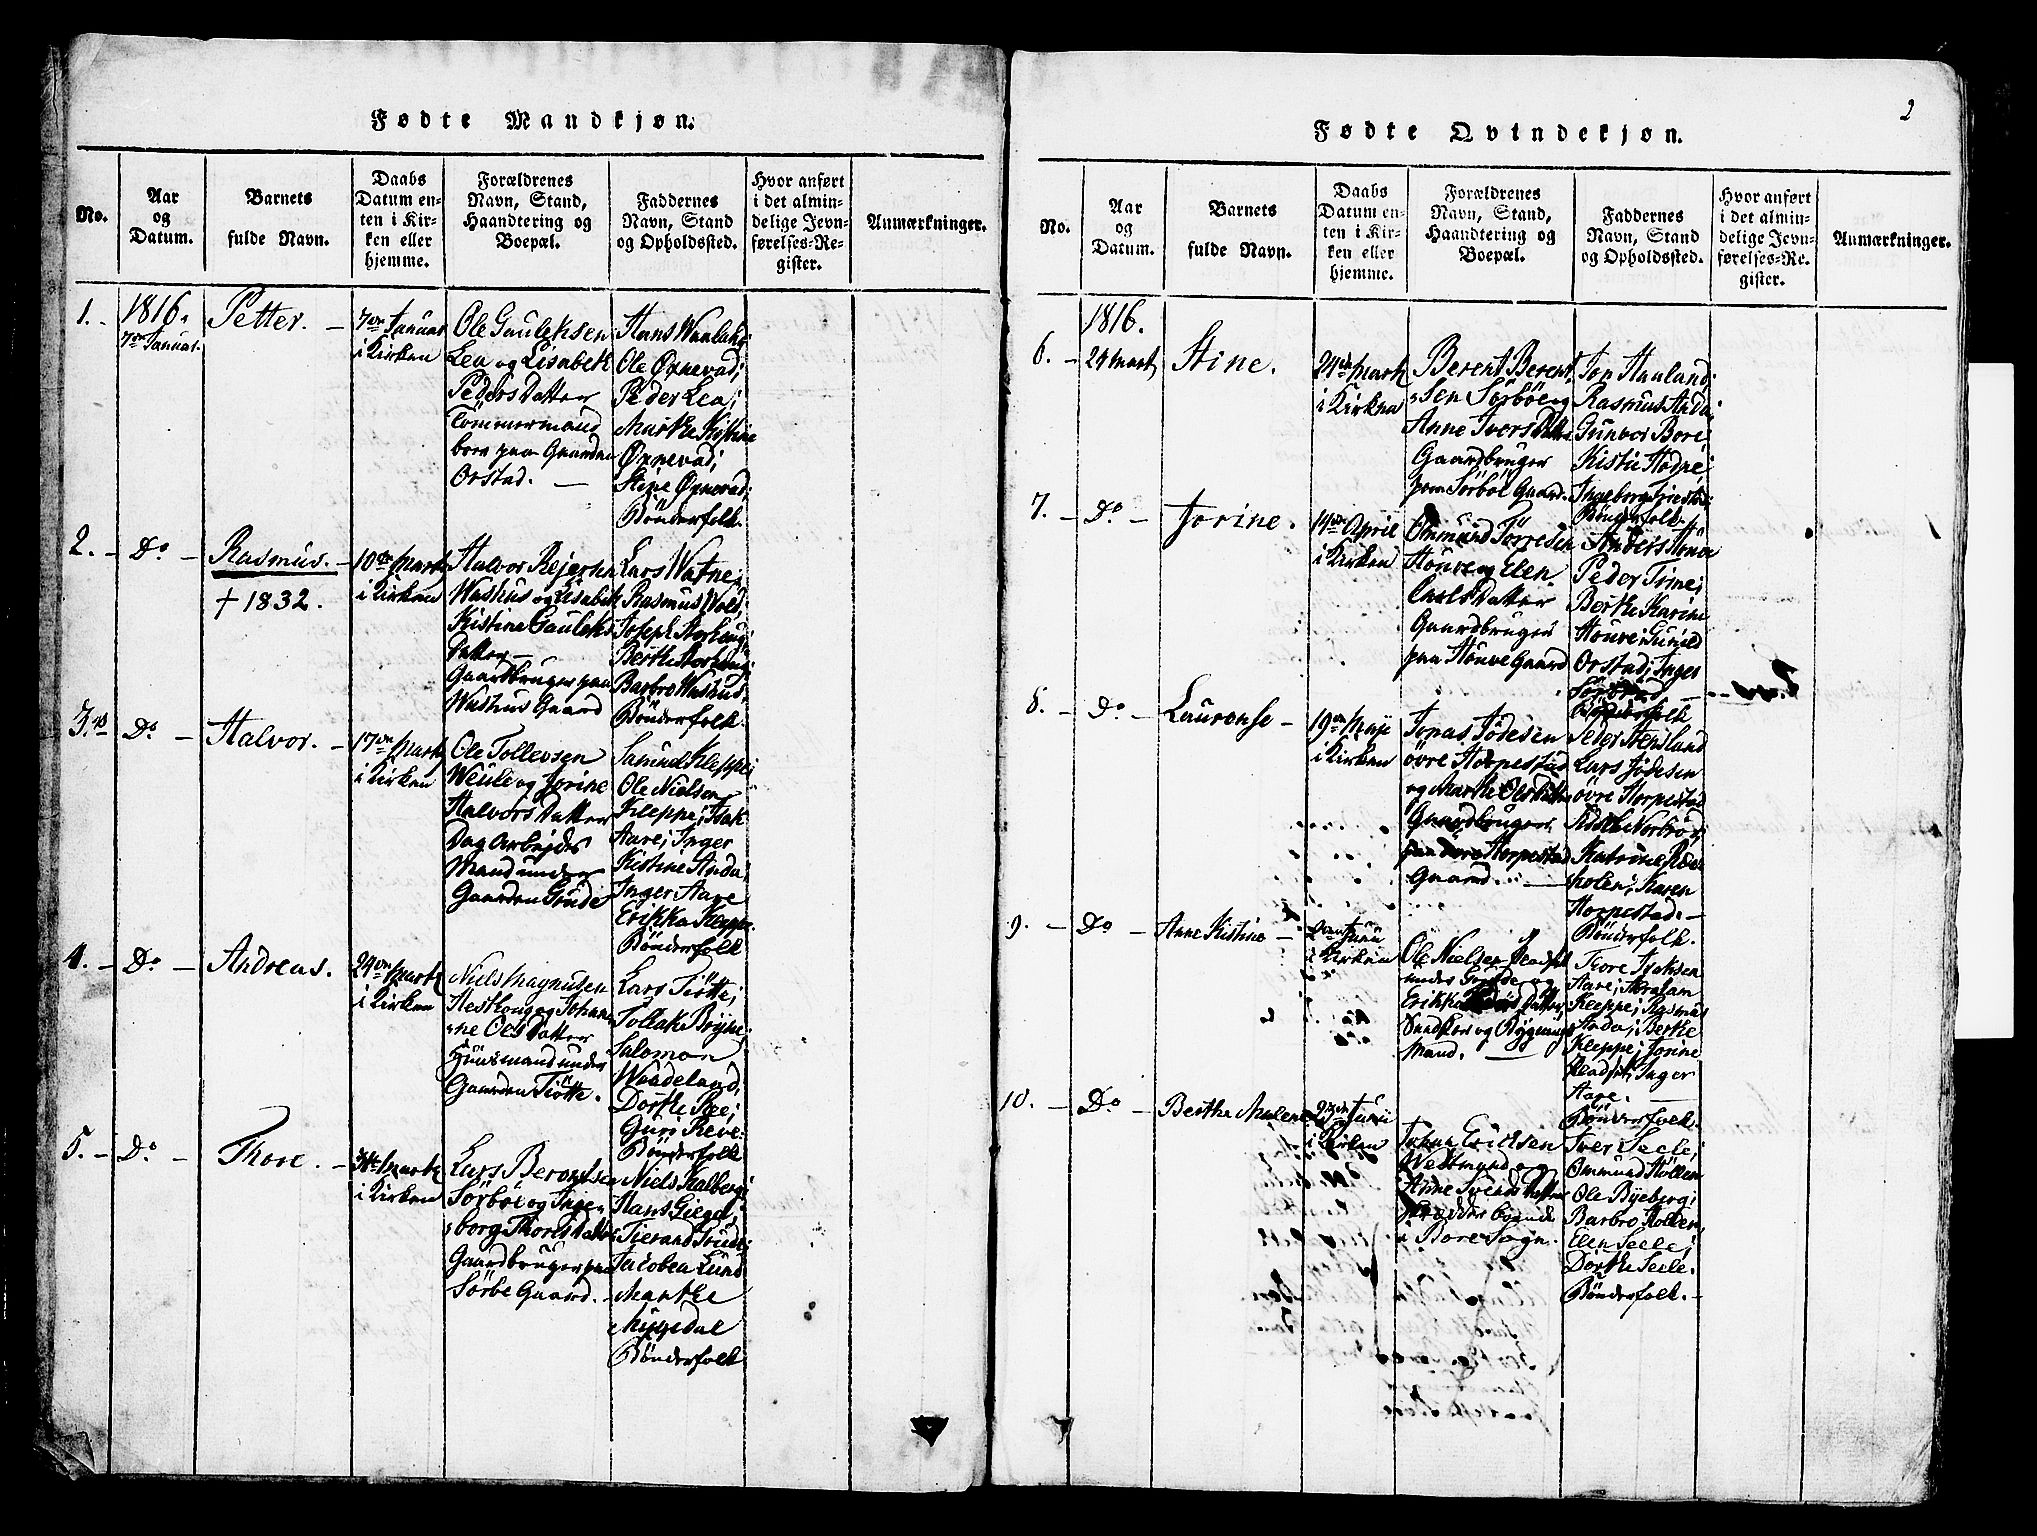 Fødte Mandkjøn.
No.
Aar
og
Datum.
Barnets
fulde Navn.
Daabs
Datum en-
ten i Kir-
ken eller
hjemme.
Forældrenes
Navn, Stand,
Haandtering og
Boepæl.
Faddernes
Navn, Stand
og Opholdssted.
Hvor anført
i det almin-
delige Jevn-
førelses-Re-
gister.
Anmærkninger.
1.
1816.
7de Januar.
Petter.
7de Januar
i Kirken
Ole Gauleksen
Lea og Lisabeth
Peders Datter
Tömmermand
boer paa Gaarden
Orstad.
Hans
Ole Øxnevad;
Peder Lea;
Marthe Kistine
Øxnevad;
Stine Øxnevad;
Bönderfolk.
2.
Do
Rasmus.
† 1832.
10de Marts
i Kirken
Halvor Rejersen
Washus og Lisabeth
Kistine Gauleks
Datter
Gaardbruger paa
Washus Gaard
Lars Watne;
Rasmus Wold;
Joseph
Berthe
Barbro Washus;
Bönderfolk.
3.
Do
Halvor.
17de Marts
i Kirken
Ole Tollevsen
og Jorine
Halvors Datter
Dag Arbejds
Mand under
Gaarden Grude
Samuel Kleppe;
Ole Nielsen
Kleppe; Isak
Aare; Inger
Kistine Anda;
Inger Aare
Erikka Kleppe.
Bönderfolk
4.
Do
Andreas.
24de Marts
i Kirken
Niels Magnusen
Hesthoug og Johan-
ne Ols Datter
Huusmand under
Gaarden Tiötte.
Lars Tiötte;
Tollak Bryne;
Salomon
Waadeland;
Dorthe Ree;
Guri Reve.
Bönderfolk
5.
Do
Thore.
i Kirken
Lars Berentsen
Sörböe og Inge-
borg Thores Datter
Gaardbruger paa
Sörbe Gaard.
Niels Kalberg;
Hans Giegel;
Jacobea Lund
Marthe
Bönderfolk
2
Fødte Qvindekjøn.
No.
Aar
og
Datum.
Barnets
fulde Navn.
Daabs
Datum en-
ten i Kir-
ken eller
hjemme.
Forældrenes
Navn, Stand,
Haandtering og
Boepæl.
Faddernes
Navn, Stand
og Opholdssted.
Hvor anført
i det almin-
delige Jevn-
førelses-Re-
gister.
Anmærkninger.
1816.
6.
24 Marts
Stine.
24de Marts
i Kirken
Berent Berent-
sen Sörböe og
Anne Ivers Datter
Gaardbruger
paa Sörböe Gaard.
Jon Hauland;
Rasmus Anda;
Gunvor Bore;
Kistie Hodne;
Ingeborg Friestad;
Bönderfolk.
7.
Do
Jorine.
14de April
i Kirken
Ommund Törresen
Houve og Elen
Carls Datter
Gaardbruger
paa Houve Gaard
Anders Houve
Peder Trine;
Berthe Karine
Houve; Gunild
Orstad; Inger
Bönderfolk
8.
Do
Lauranse
19de Maji
i Kirken
Jonas Jödesen
övre Horpestad
og Marthe Ols Datter
Gaardbruger
paa övre Horpestad
Gaard.
Peder Stensland
Lars Jödesen
övre Horpestad
Karen
Horpestad.
Bönderfolk.
9.
Do
Anne Kistine
2den Junii
i Kirken
Ole Nielsen
under Grude og
Erikka Datter
Mand.
Tore Isaksen
Aare; Abraham
Kleppe; Rasmus
Anda; Berthe
Kleppe; Jorine
Inger
Aare.
Bönderfolk.
10.
Do
Berthe Malene
23de Junii
i Kirken
Johan Ericksen
Westmand og
Anne Svends Datter
boende
i Bore Sogn.
Iver Seele;
Ommund Hollen
Ole Byeberg;
Barbro Hollen;
Elen Seele;
Dorthe Seele.
Bönderfolk.